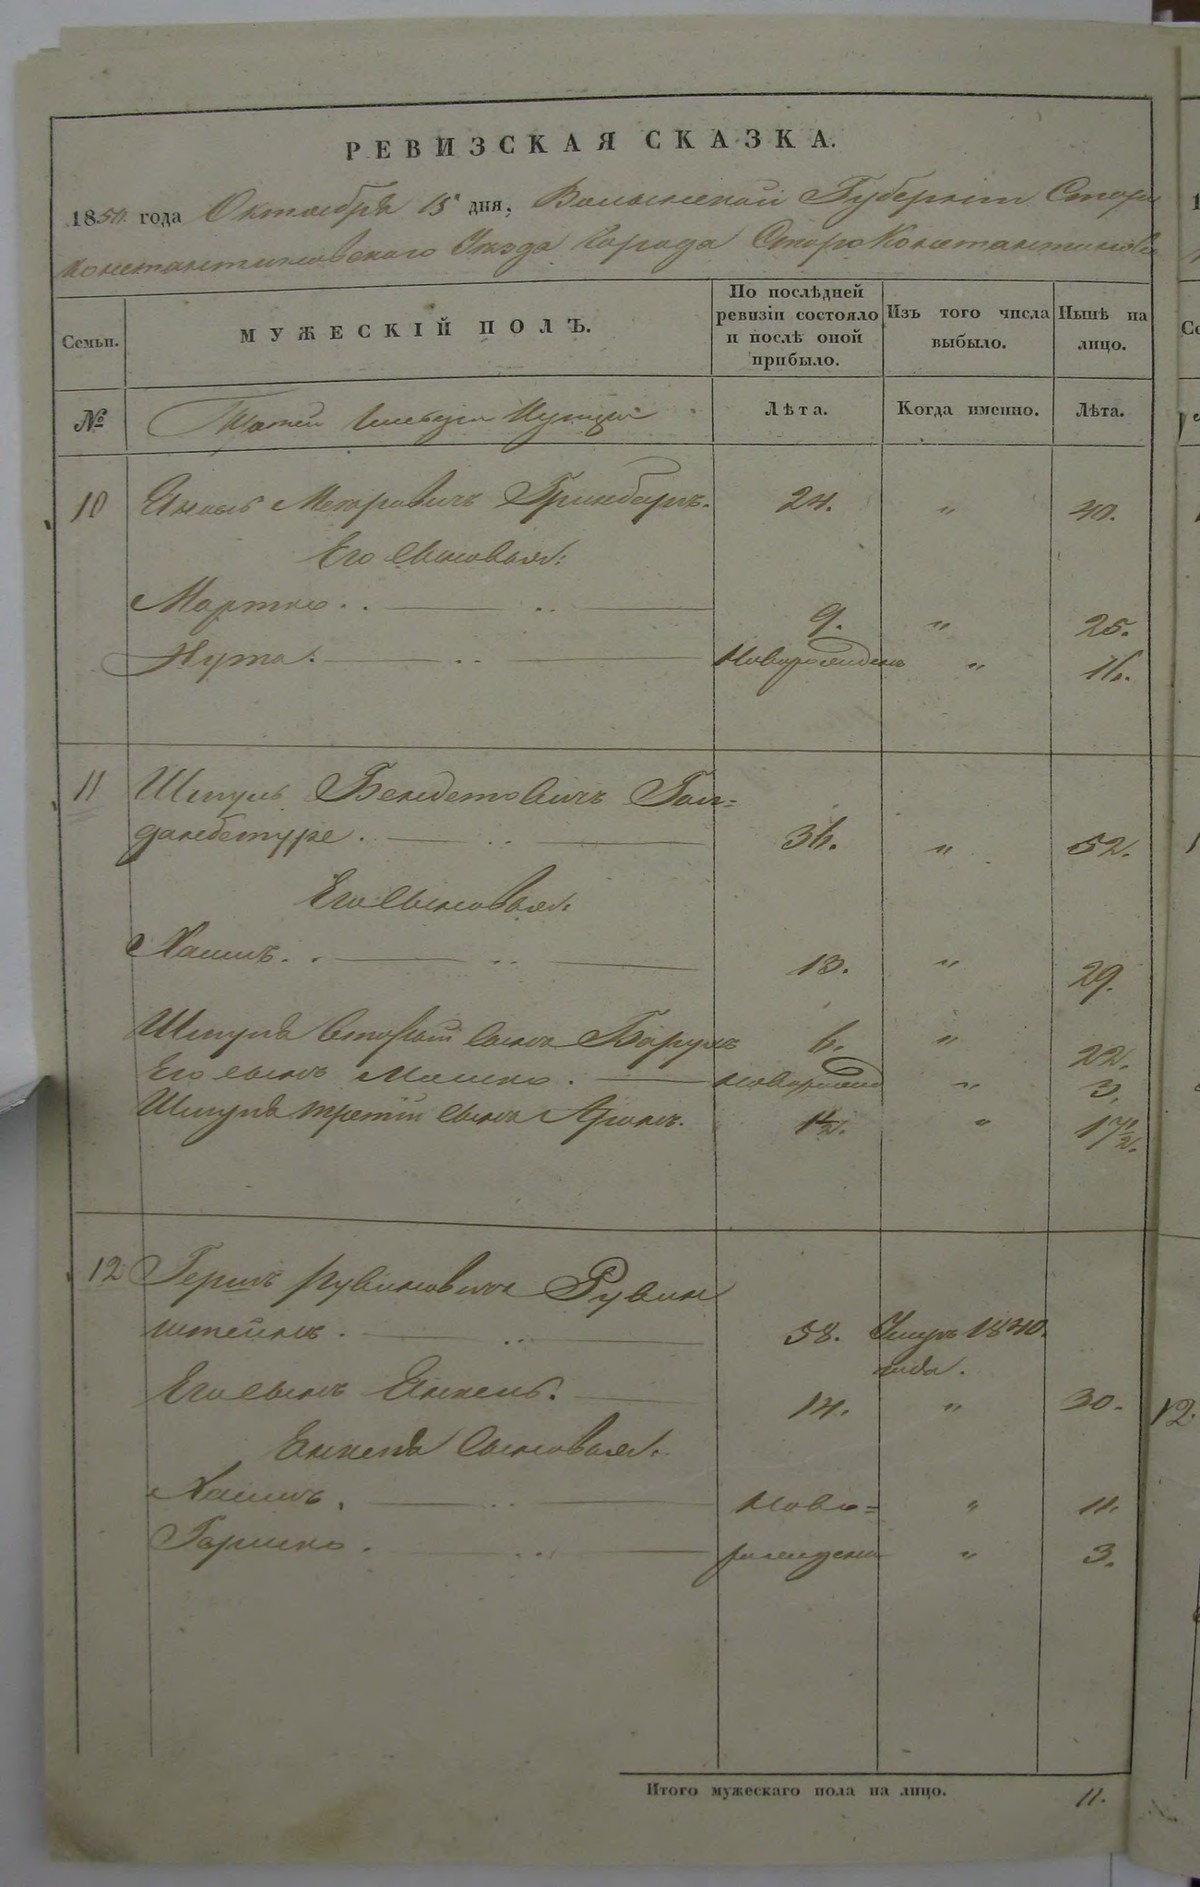 РЕВИЗСКАЯ СКАЗКА.
1850. года Октября 15 дня, Волынской Губернии Старо
константиновского Уезда Города Старо Константинова
Семьи.
МУЖЕСКІЙ ПОЛЪ.
По послѣдней
ревизіи состояло
и послѣ оной
прибыло.
Изъ того числа
выбыло.
Нынѣ на
лицо.
№
Третей Гильдии Купцы
Лѣта.
Когда именно.
Лѣта.
10 Гринберъ. 24. " 40.
Его Сыновья:
Мортко. 9. " 25.
Нута. Новорожденъ " 16.
11 Шмуль Бендетовичъ
36. " 52.
Его Сыновья:
Хаимъ. 13. " 29.
Шмуля вторый сынъ Борухъ 6. " 22.
Его сынъ Мошко. новорожд " 3.
Шмуля третiй сынъ Аронъ. 1½. " 17½.
12 Гершъ Рувиновичъ Рувин
штейнъ. 58. Умеръ 1840.
года.
Его сынъ Янкель. 14. " 30.
Янкеля Сыновья:
Хаимъ. Ново= " 11.
Гершко. рожденъ " 3.
Итого мужескаго пола на лицо. 11.
12.